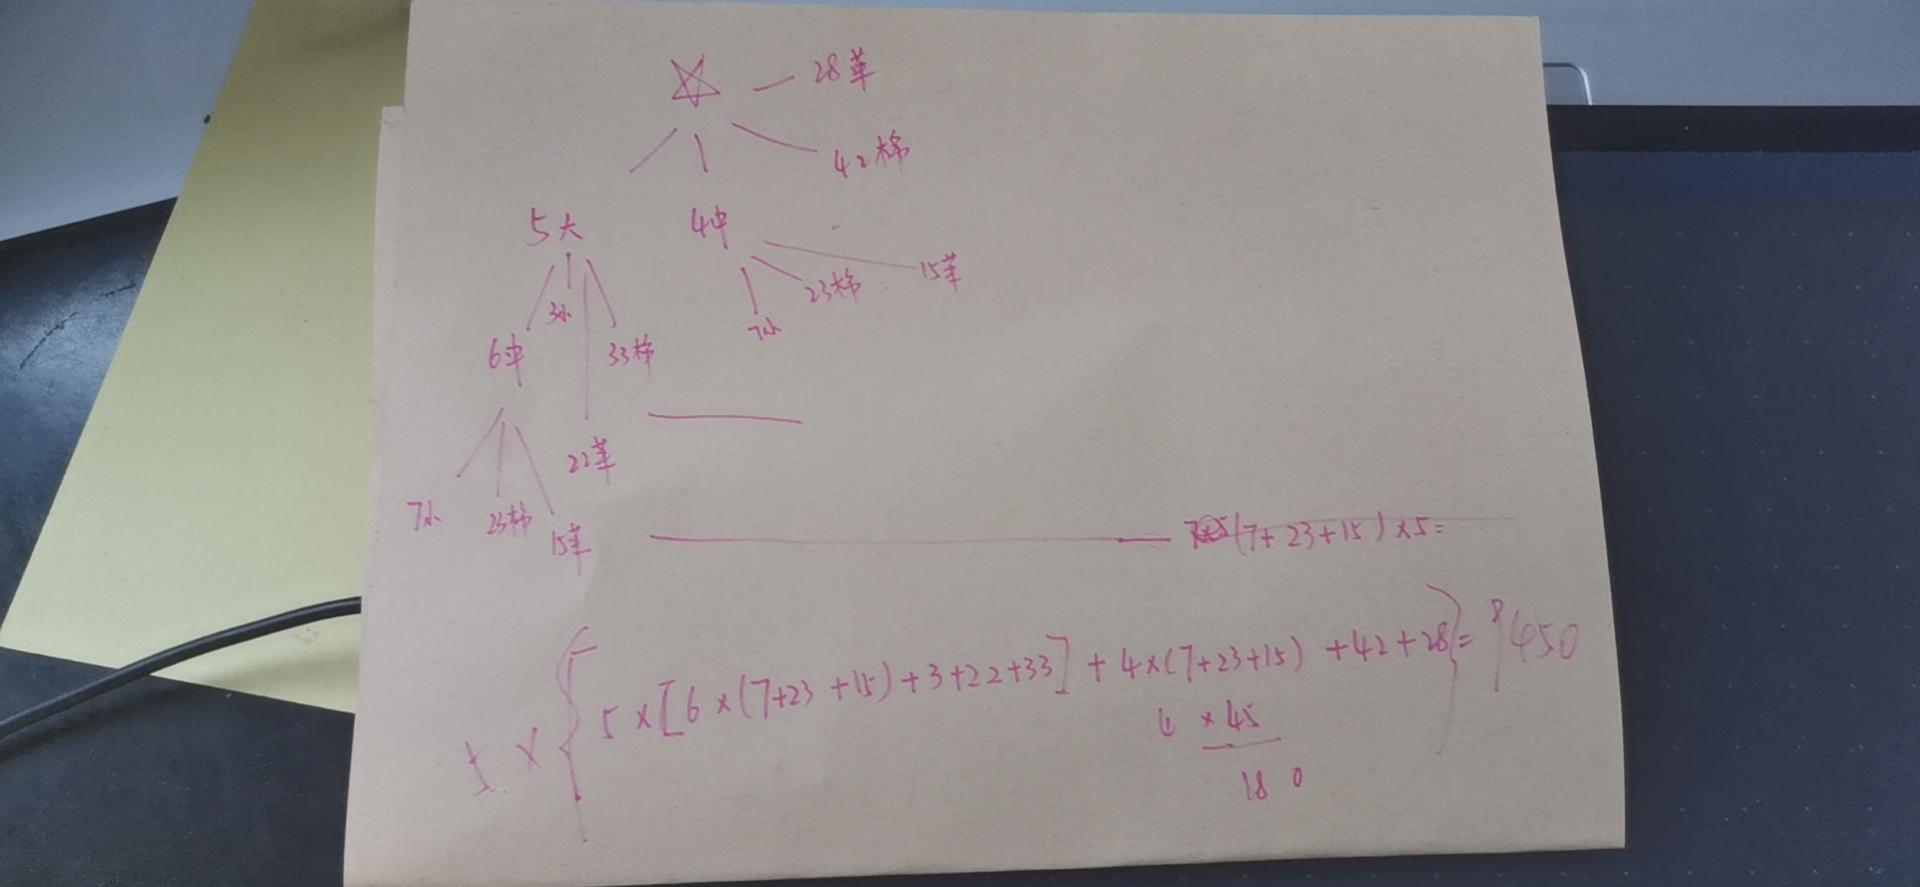 28苹
42梯
5大 4中
3小 7小 23梯 15苹
6中 33梯
22苹
7小 23梯 15苹
(7+23+15)×5=
5×{5×[6×(7+23+15)+3+22+33]+4×(7+23+15)+42+28}=9450
4×45
180